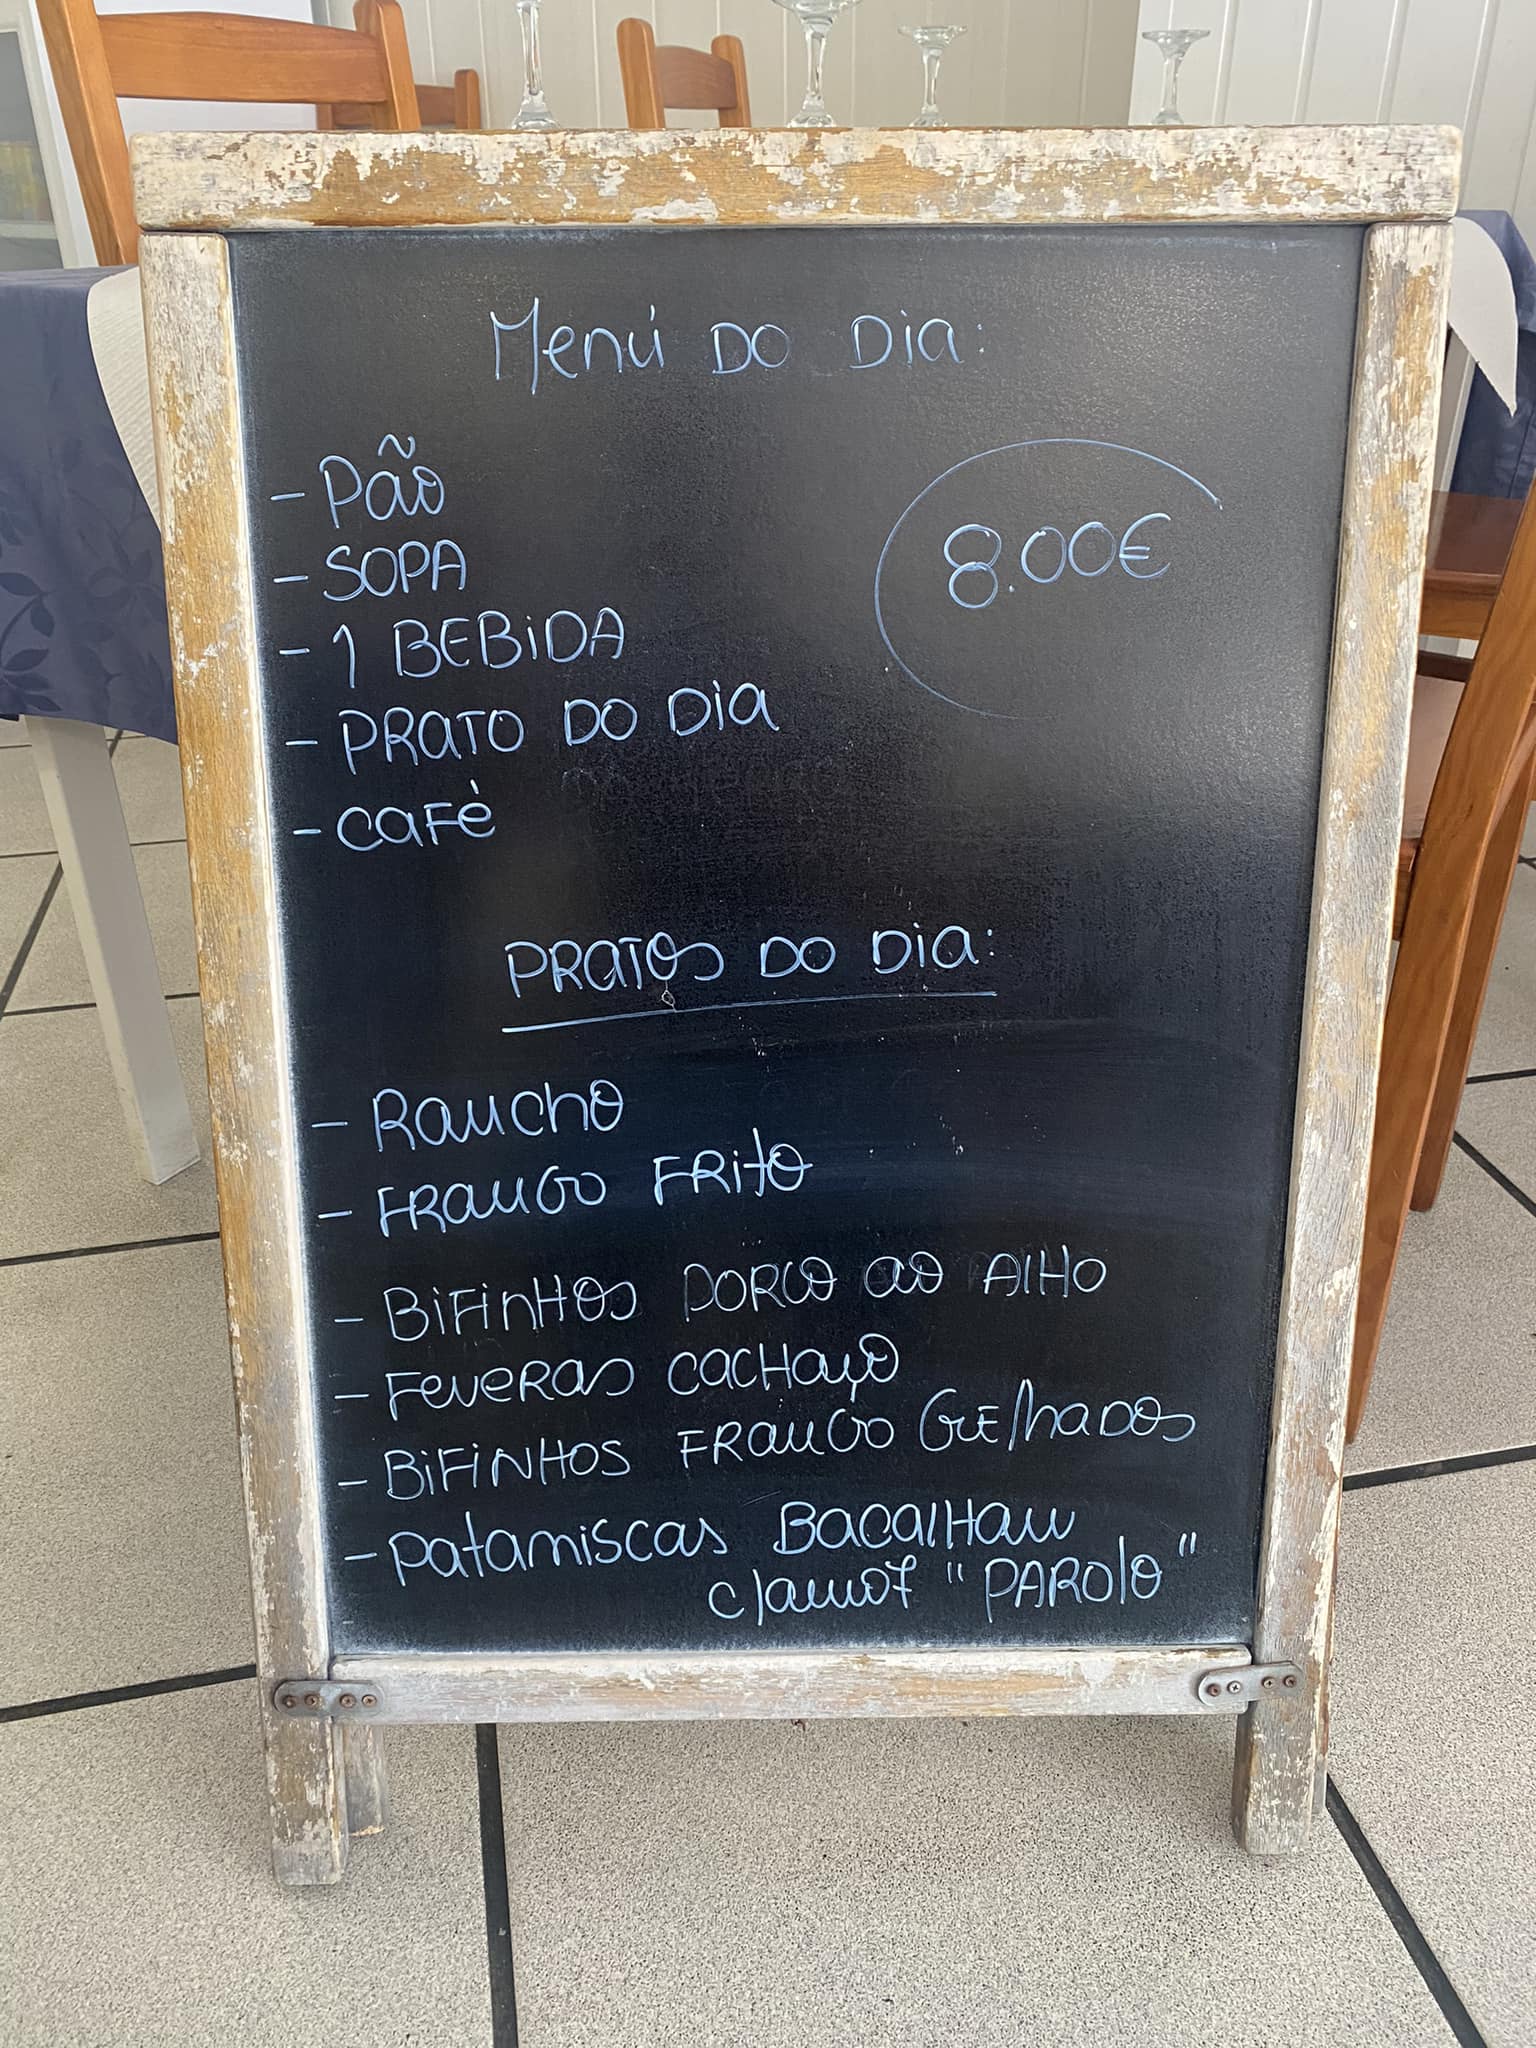 Menú DO DIA:
- Pão
8.00€
- SOPA
- 1 BEBIDA
- PRATO DO DIA
- CAFÉ
PRATOS DO DIA:
- RANCHO
- FRANGO FRITO
- BIFINHOS PORCO AO ALHO
- FEVERAS CACHAÇO
- BIFINHOS FRANGO GRELHADOS
- PATANISCAS BACALHAU
c/arroz "PAROLO"